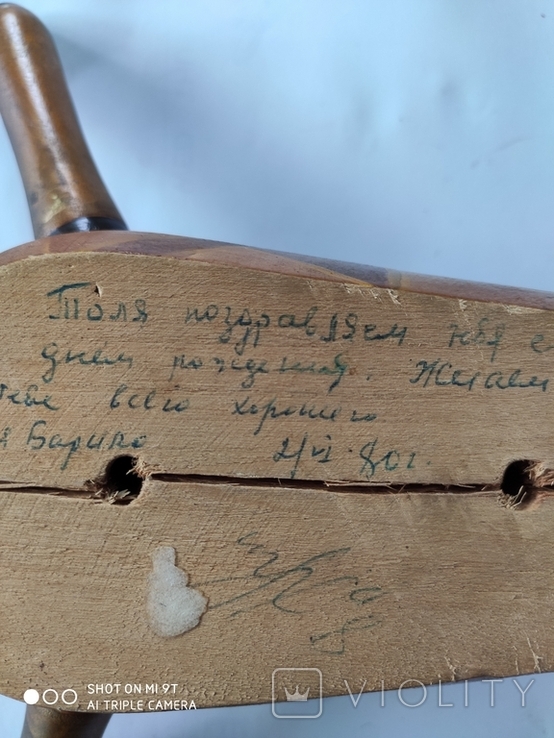 Толя поздравляем тебя с
днем рождения. Желаем
тебе всего хорошего
2/VI 80г.
SHOT ON MI 9T
AI TRIPLE CAMERA
VIOLITY